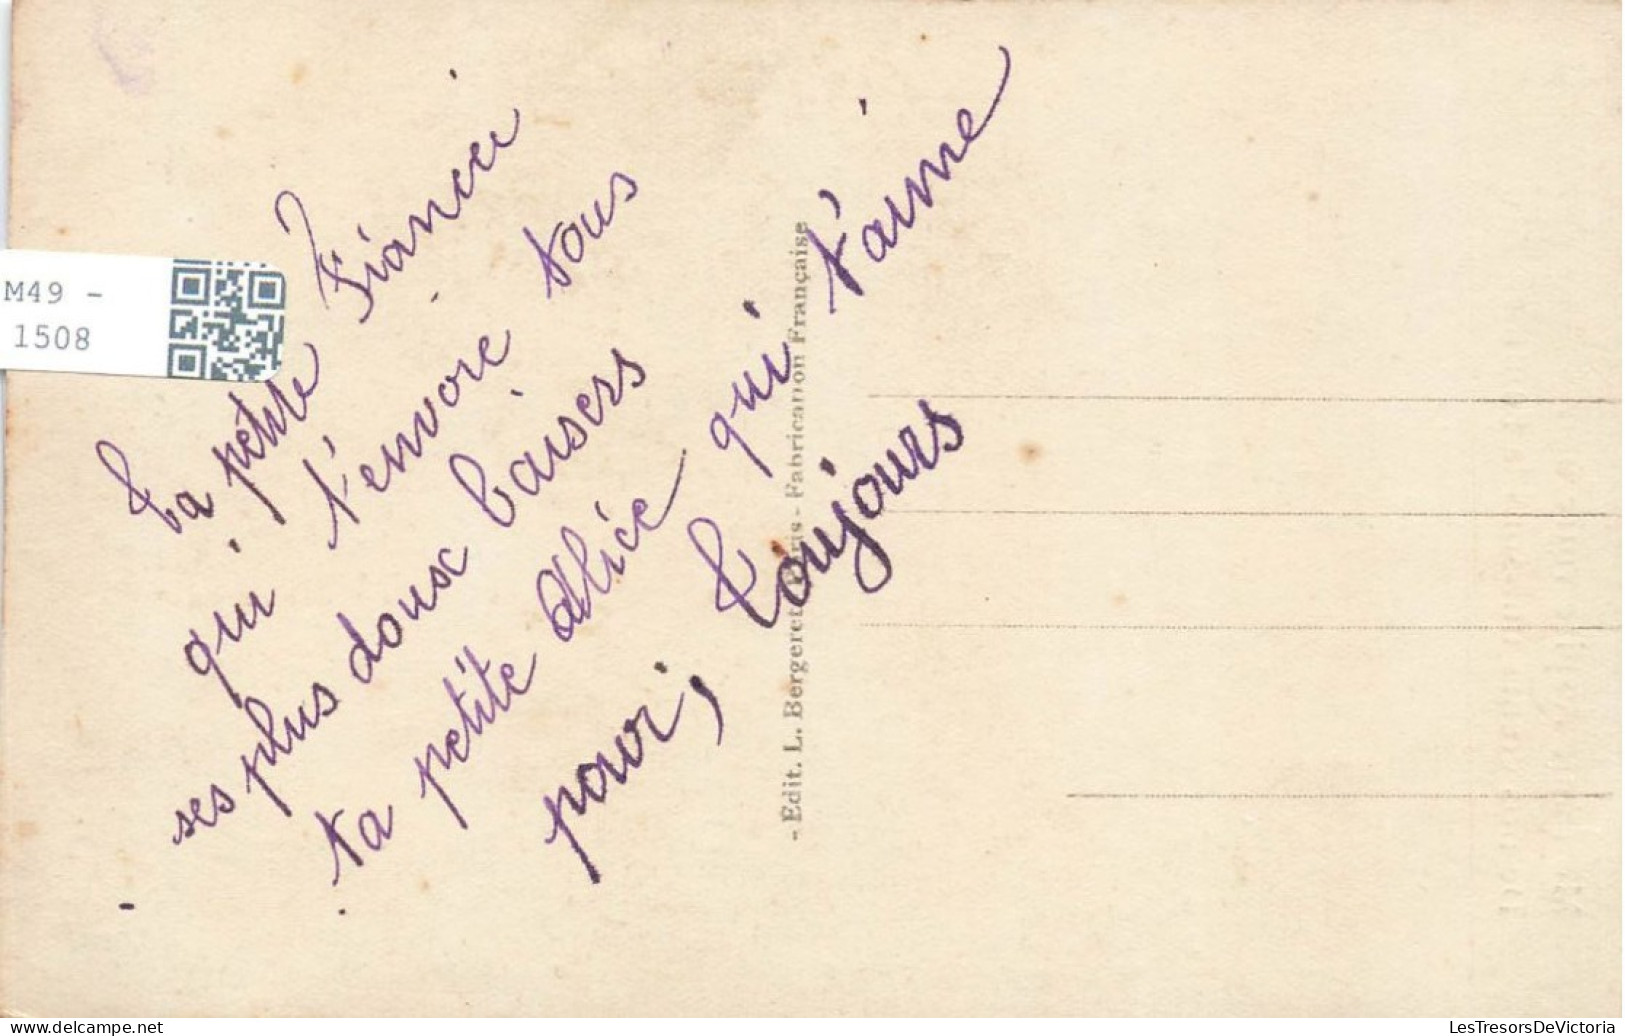 Ta petite Fiancée
qui t'envoie tous
ses plus doux baisers
ta petite Alice qui t'aime
pour Toujours
- Edit. L. Bergeret Paris - Fabrication Française
M49 -
1508
delcampe.net
LesTresorsDeVictoria